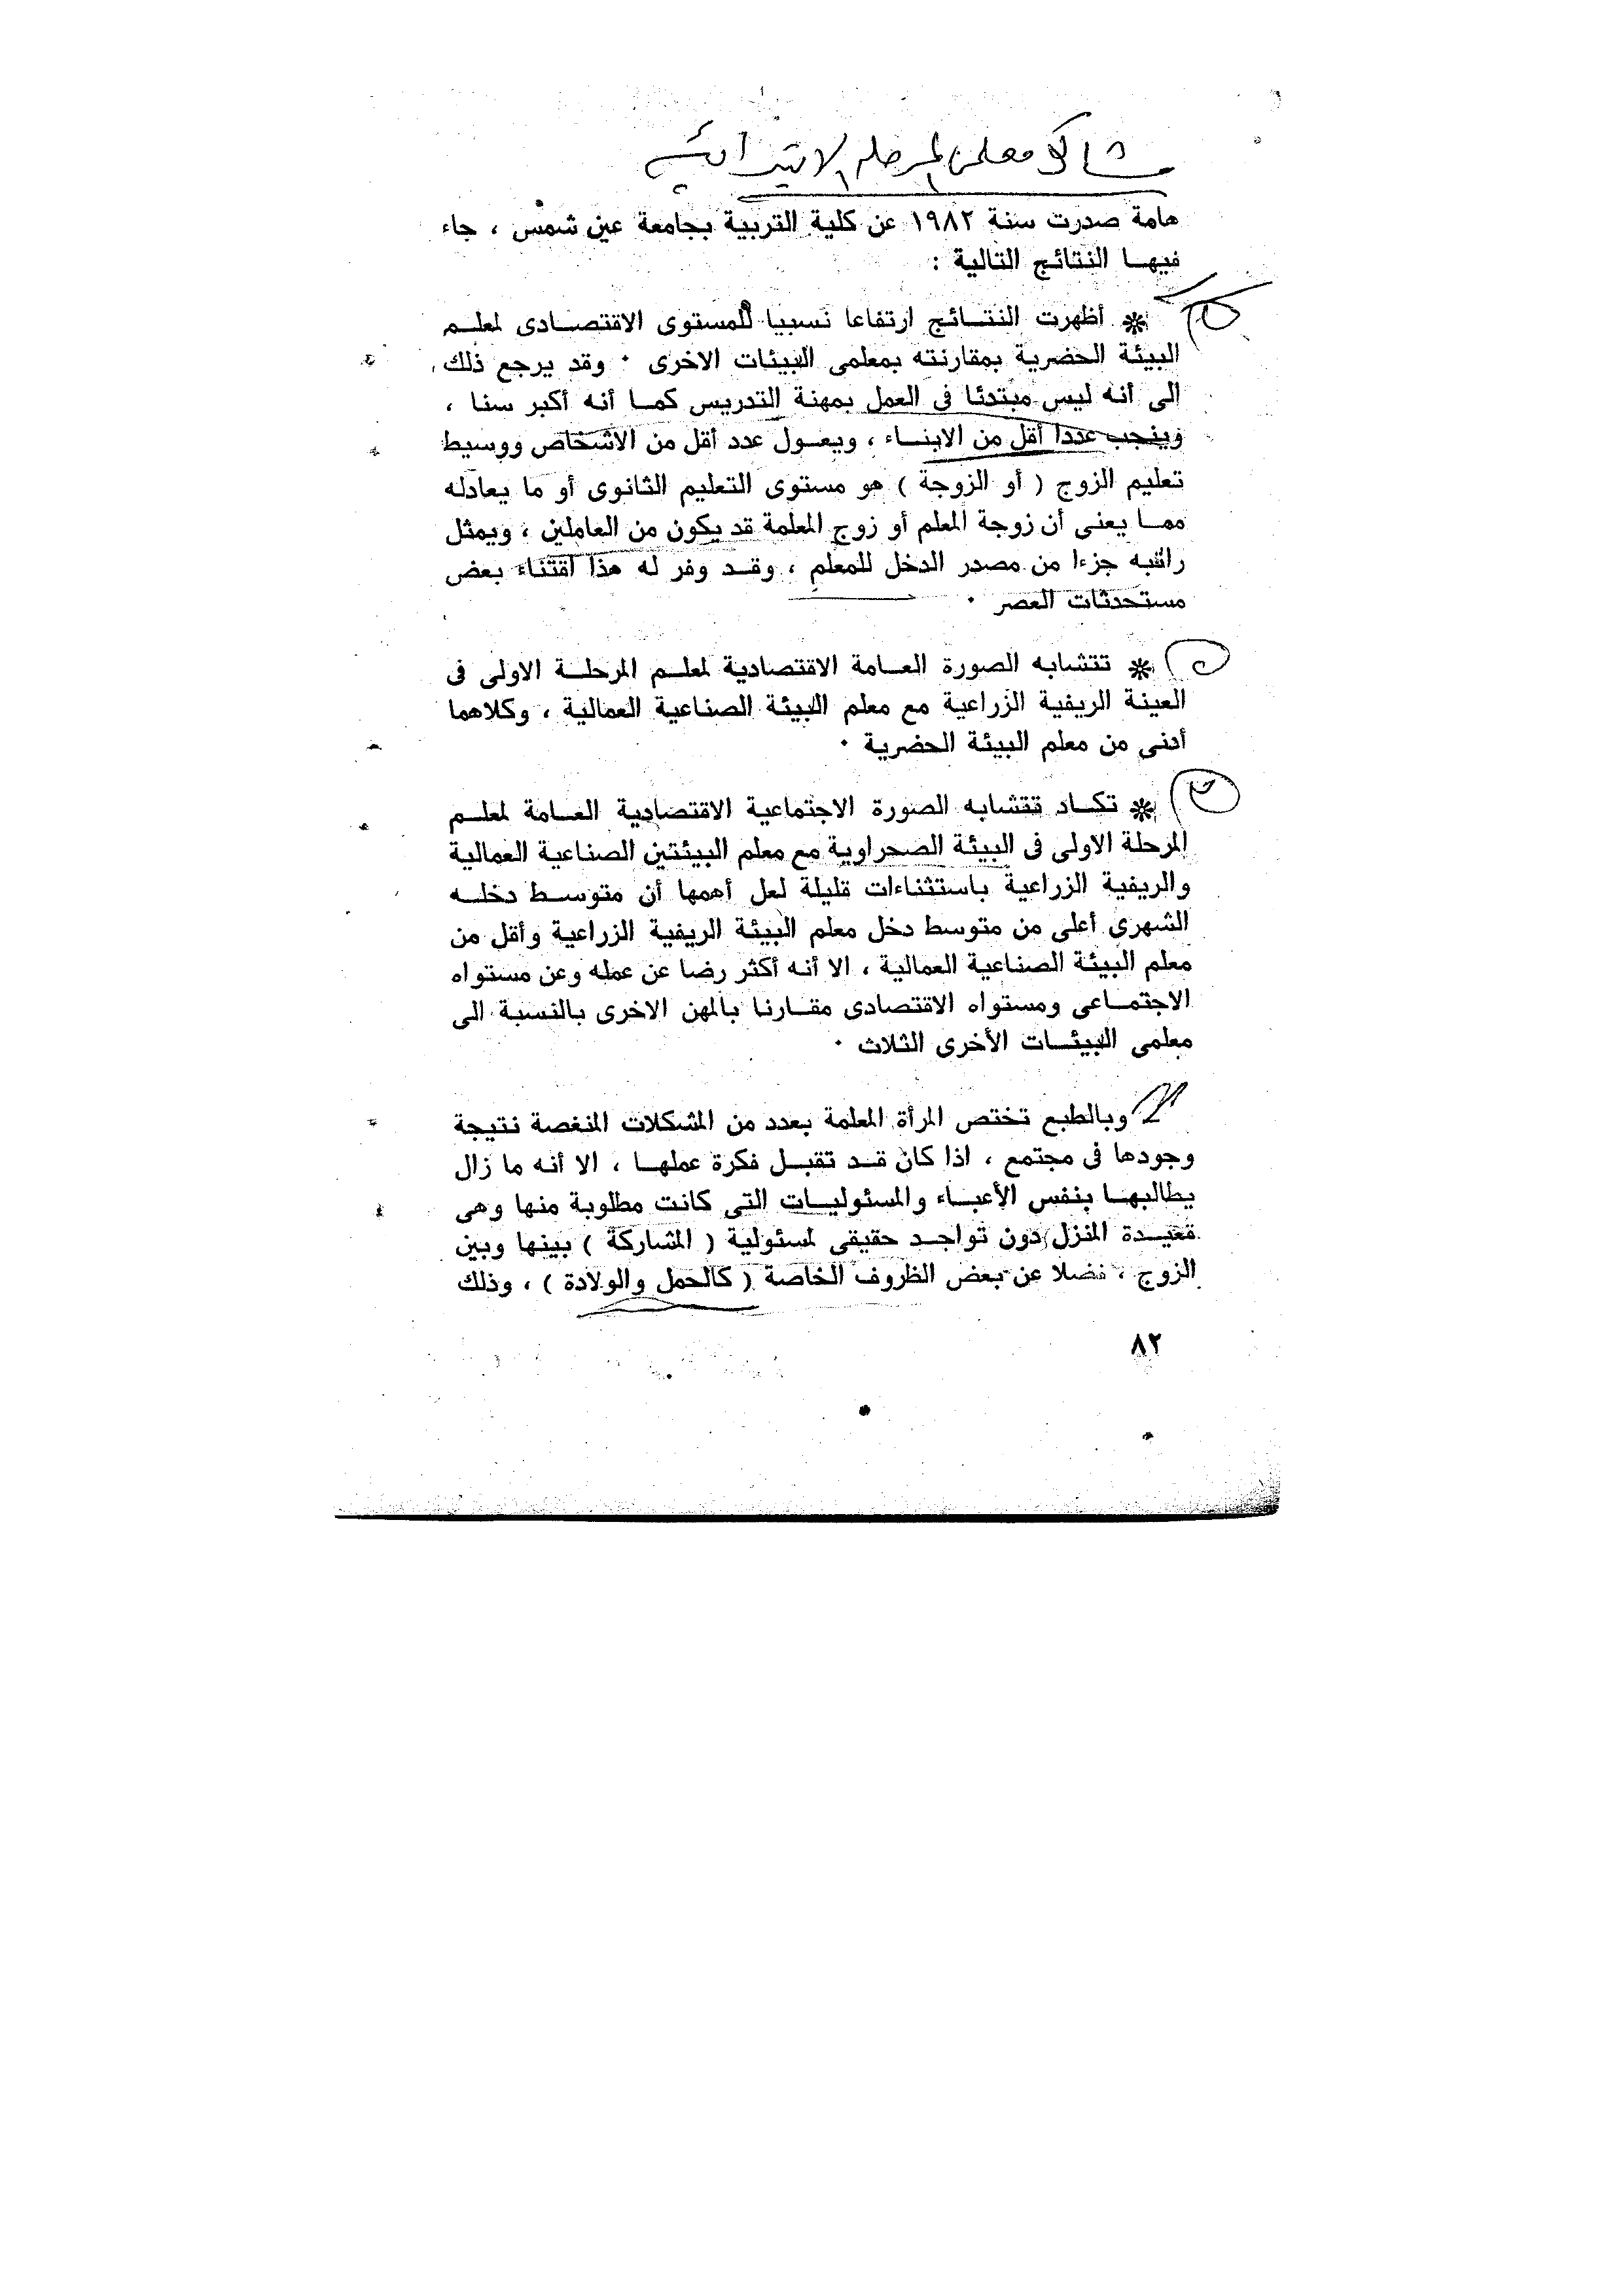 مشاكل معلمى المرحلة الابتدائية
هامة صدرت سنة ١٩٨٢ عن كلية التربية بجامعة عين شمس ، جاء
فيها النتائج التالية :
* أظهرت النتائج ارتفاعا نسبيا للمستوى الاقتصادى لمعلم
البيئة الحضرية بمقارنته بمعلمى البيئات الاخرى . وقد يرجع ذلك
الى أنه ليس مبتدئا فى العمل بمهنة التدريس كما أنه أكبر سنا ،
وينجب عددا أقل من الابناء ، ويعول عدد أقل من الاشخاص ووسيط
تعليم الزوج ( أو الزوجة ) هو مستوى التعليم الثانوى أو ما يعادله
مما يعنى أن زوجة المعلم أو زوج المعلمة قد يكون من العاملين ، ويمثل
راتبه جزءا من مصدر الدخل للمعلم ، وقد وفر له هذا اقتناء بعض
مستحدثات العصر .
* تتشابه الصورة العامة الاقتصادية لمعلم المرحلة الاولى فى
العينة الريفية الزراعية مع معلم البيئة الصناعية العمالية ، وكلاهما
أدنى من معلم البيئة الحضرية .
* تكاد تتشابه الصورة الاجتماعية الاقتصادية العامة لمعلم
المرحلة الاولى فى البيئة الصحراوية مع معلم البيئتين الصناعية العمالية
والريفية الزراعية باستثناءات قليلة لعل أهمها أن متوسط دخله
الشهرى أعلى من متوسط دخل معلم البيئة الريفية الزراعية وأقل من
معلم البيئة الصناعية العمالية ، الا أنه أكثر رضا عن عمله وعن مستواه
الاجتماعى ومستواه الاقتصادى مقارنا بالمهن الاخرى بالنسبة الى
معلمى البيئات الأخرى الثلاث .
وبالطبع تختص المرأة المعلمة بعدد من المشكلات المنغصة نتيجة
وجودها فى مجتمع ، اذا كان قد تقبل فكرة عملها ، الا أنه ما زال
يطالبها بنفس الأعباء والمسئوليات التى كانت مطلوبة منها وهى
قعيدة المنزل دون تواجد حقيقى لمسئولية ( المشاركة ) بينها وبين
الزوج ، فضلا عن بعض الظروف الخاصة ( كالحمل والولادة ) ، وذلك
٨٢